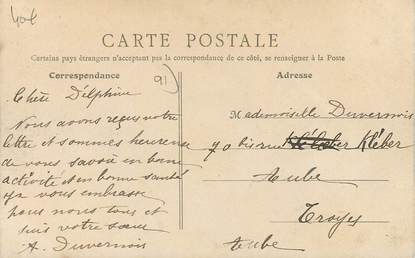 40€
CARTE POSTALE
Certains pays étrangers n'acceptant pas la correspondance de ce côté, se renseigner à la Poste
Correspondance
91)
Adresse
Chère Delphine
Nous avons reçus votre
lettre et sommes heureuse
de vous savoir en bonne
activité et en bonne santé
vous embrasse
pour nous tous et
suis votre sœur
A. Duvernois
Mademoiselle Duvernois
70 bis rue Kléber
Aube
Troyes
Aube